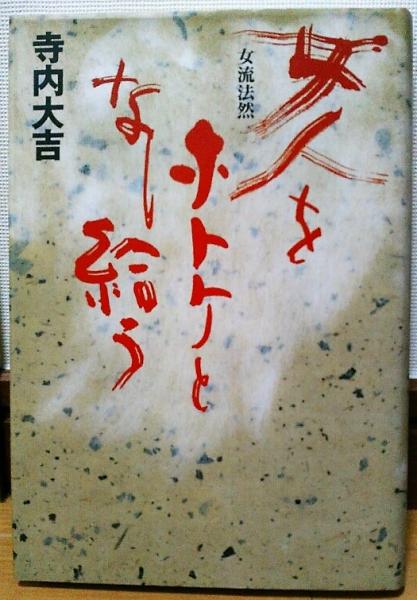 女人を
女流法然
ホトケと
なし給う
寺内大吉